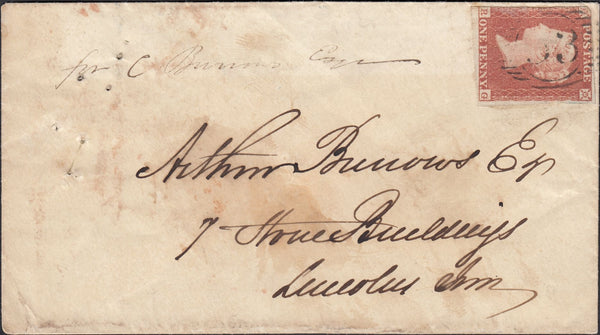 for C Burrows Esqr
Arthur Burrows Esq
7 Stone Buildings
Lincolns Inn
POSTAGE
ONE PENNY
H G